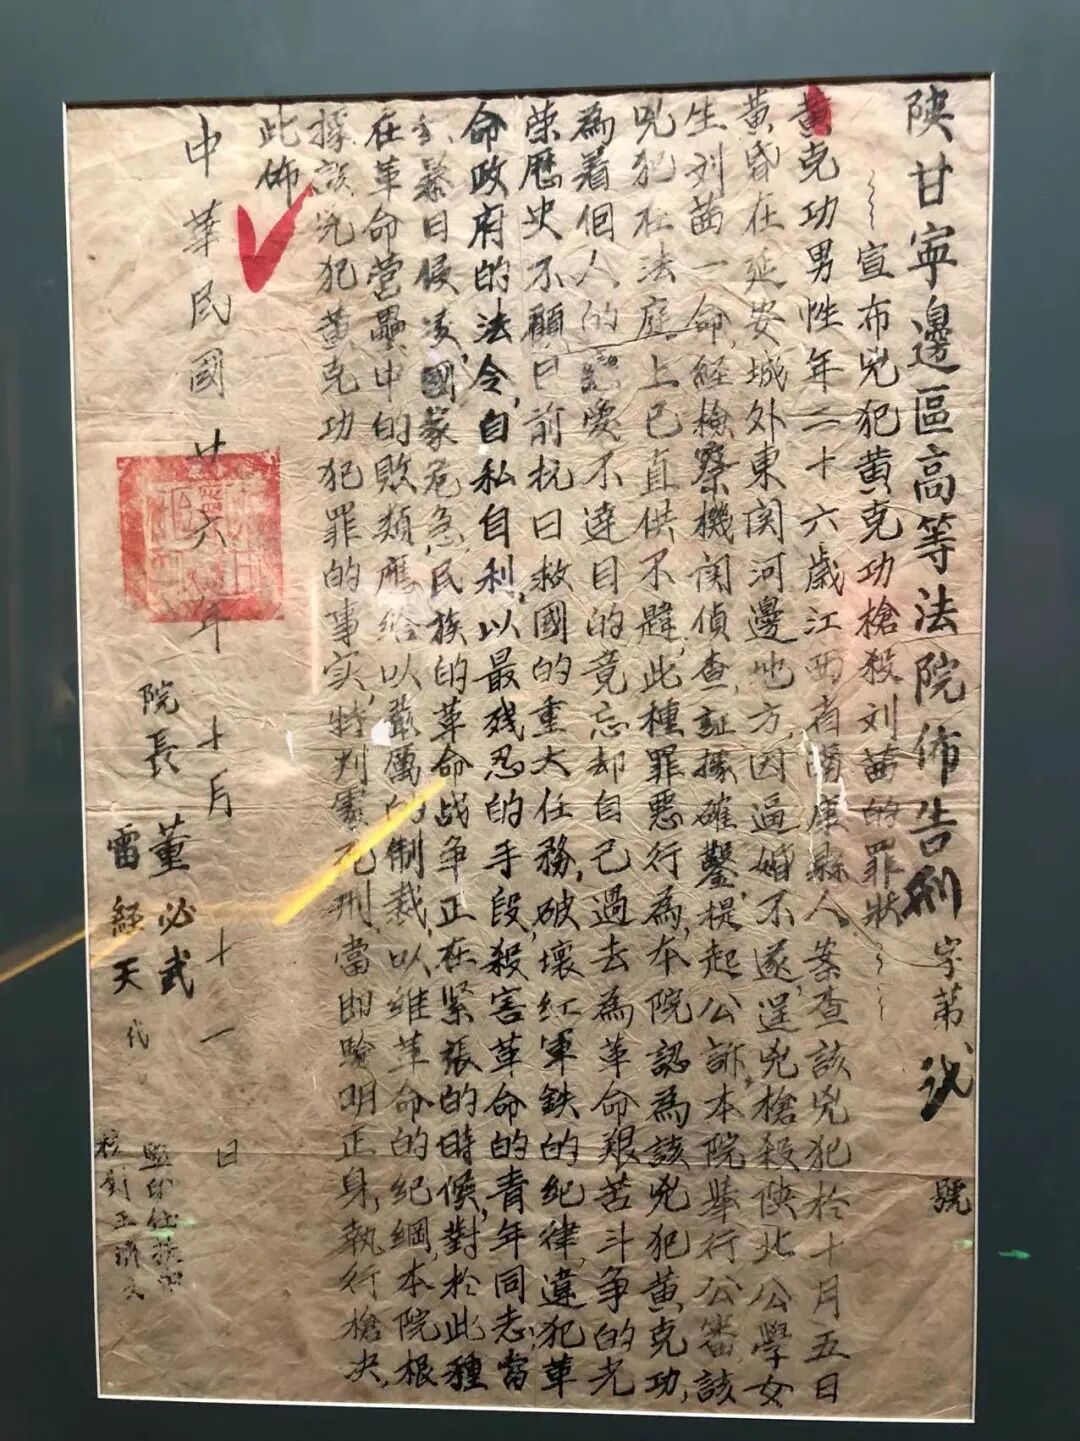 陕甘寧邊區高等法院佈告刑字第 號
宣布兇犯黄克功槍殺刘茜的罪狀
黄克功男性年二十六歲江西省南康縣人案查該兇犯於十月五日
黄昏在延安城外東関河邊地方,因逼婚不遂,逞兇槍殺陕北公學女
生刘茜一命,経檢察機関偵查,証據確鑿,提起公訴,本院舉行公審,該
兇犯在法庭上已直供不諱,此種罪惡行為,本院認為該兇犯黄克功,
為着個人的 愛不達目的竟忘却自己過去為革命艱苦斗争的光
荣歷史不顧目前抗日救國的重大任務,破壞红軍鉄的紀律,違犯革
命政府的法令,自私自利,以最残忍的手段,殺害革命的青年同志,當
日侵凌,國家危急,民族的革命战争正在紧張的時候,對於此種
在革命营壘中的敗類應给以嚴厲的制裁,以維革命的纪綱,本院根
據該兇犯黄克功犯罪的事实,特判處死刑,當即驗明正身,執行槍决,
此佈
中華民國廿六年十月十一日
院長 董必武
雷経天 代
監印任
校對王